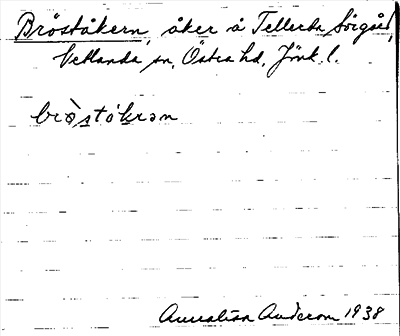 Bröståkern, åker å Tellerda Sörgård,
Vetlanda sn, Östra hd, Jönk. l.
brö̀stókrən
Annalisa Anderson 1938